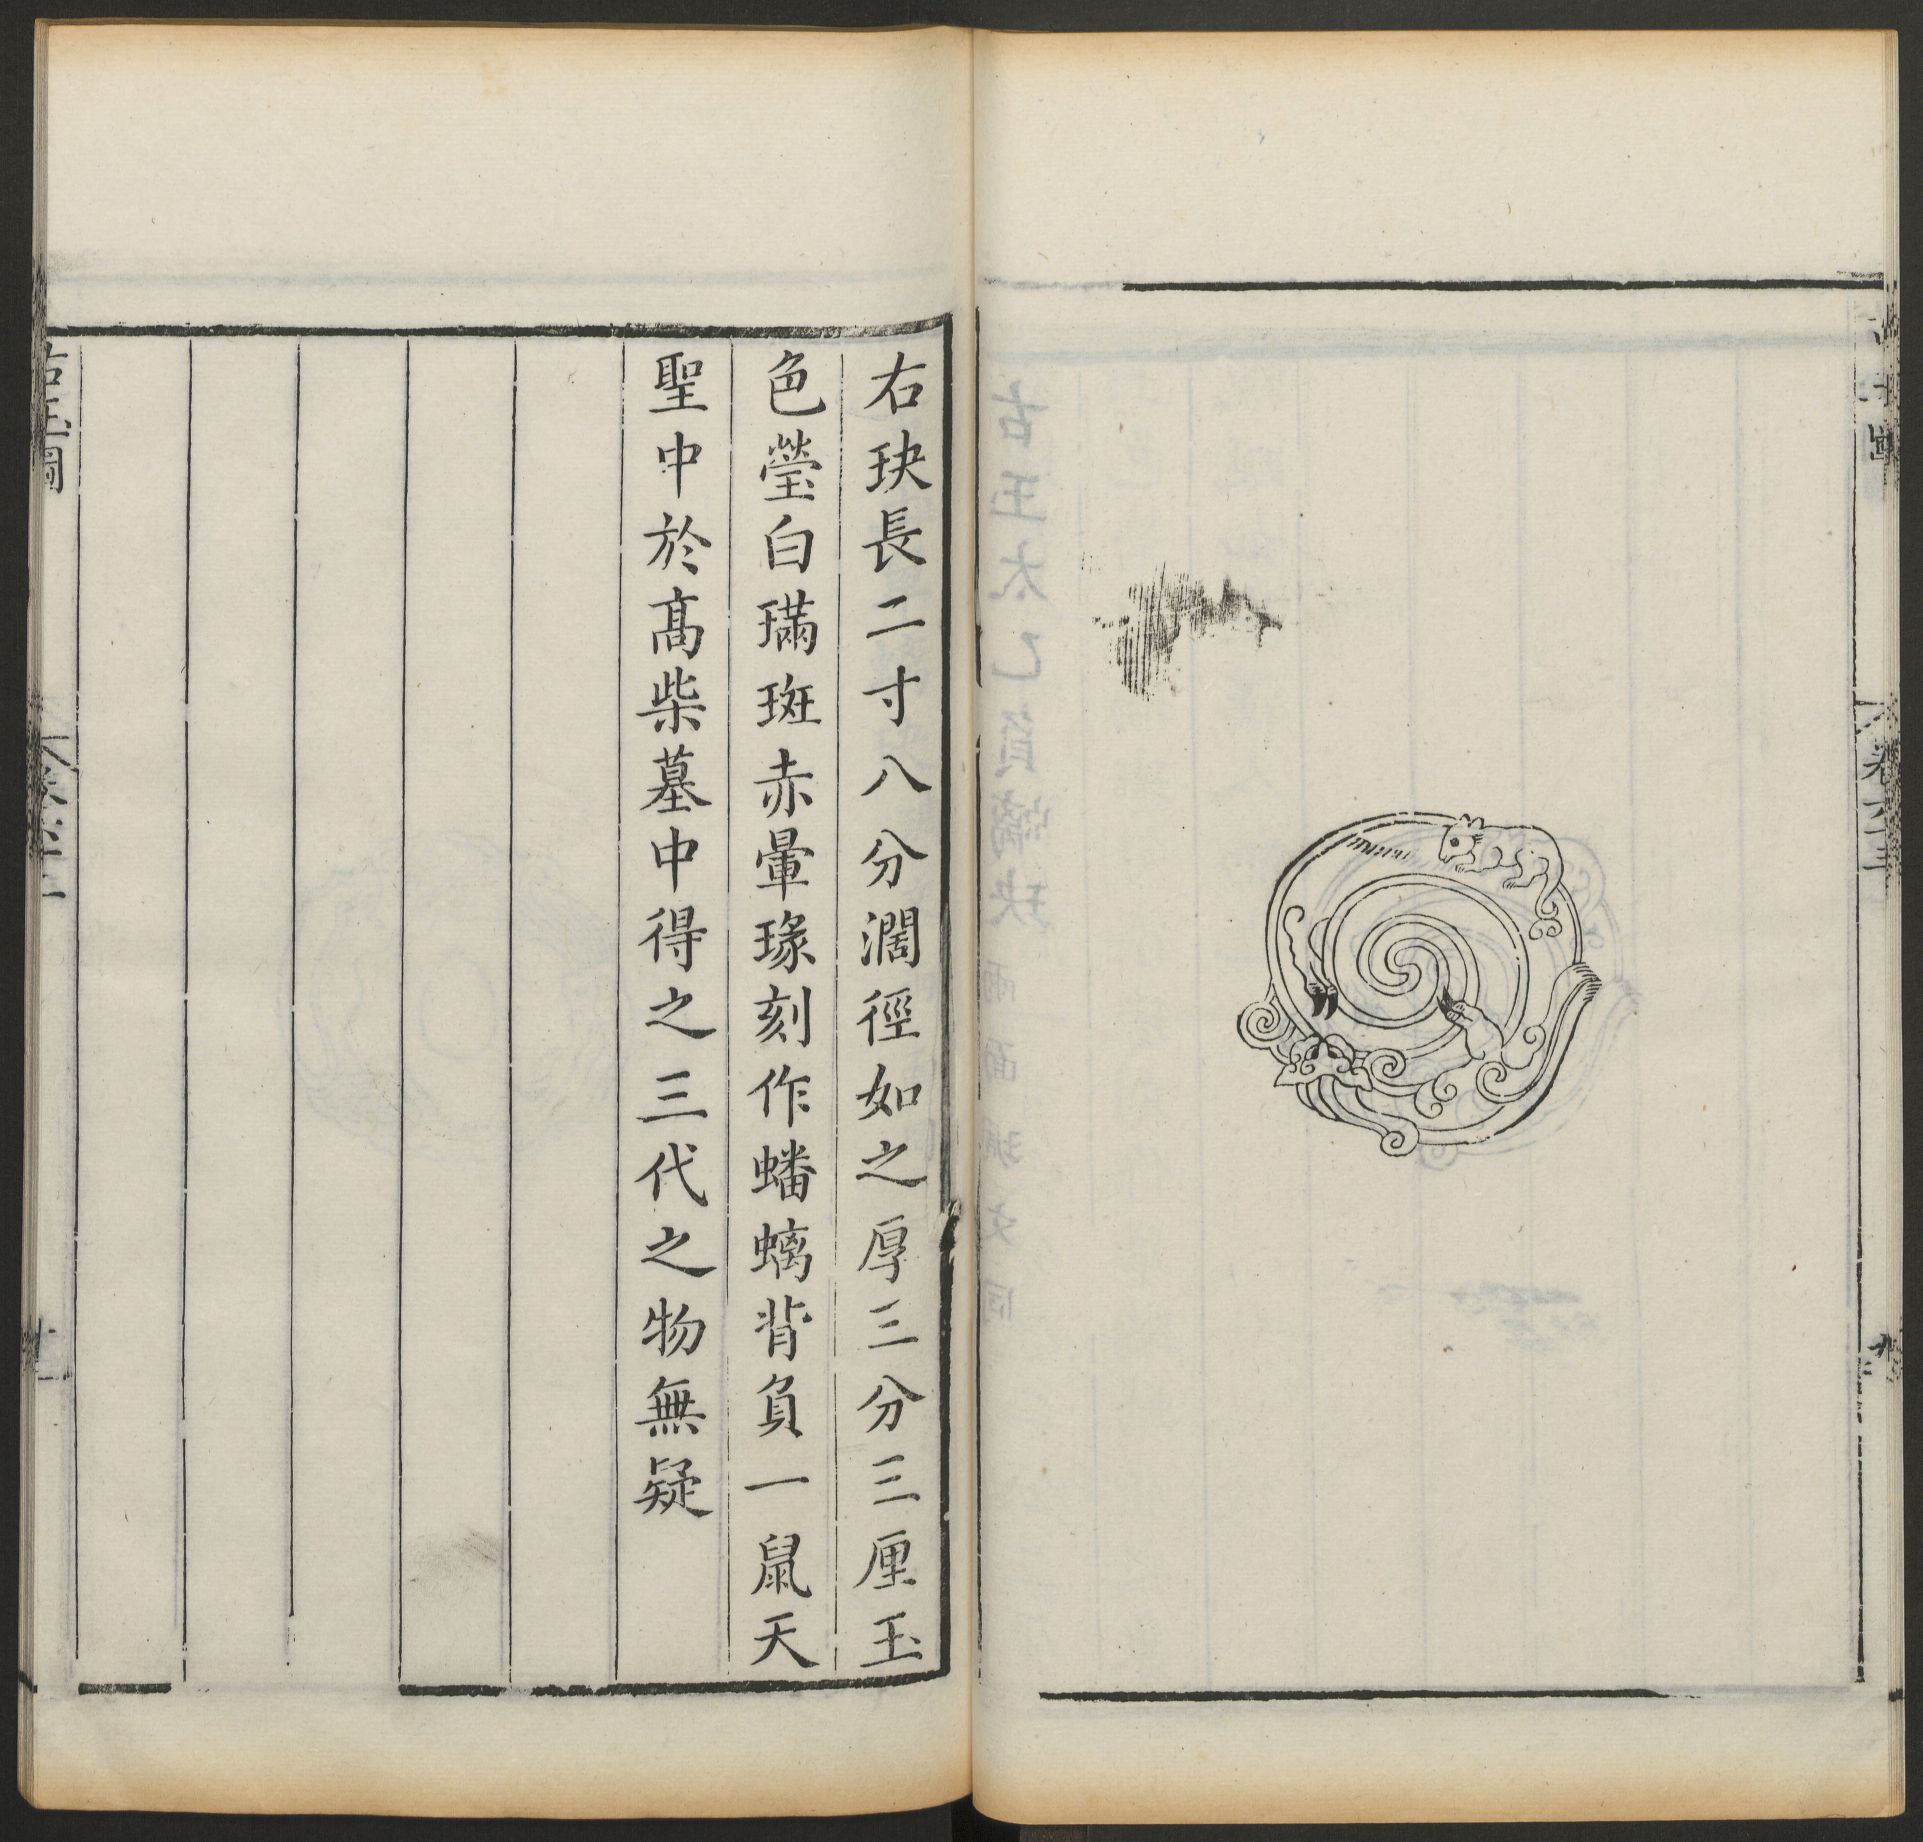 右玦長二寸八分濶徑如之厚三分三厘玉
色瑩白璊斑赤暈瑑刻作蟠螭背負一鼠天
聖中於髙柴墓中得之三代之物無疑